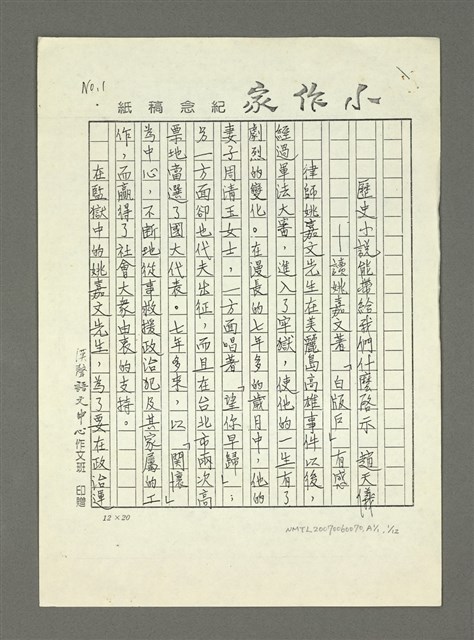 No.1
小作家紀念稿紙
歷史小說能帶給我們什麼啓示 趙天儀
——讀姚嘉文著「白版戶」有感
律師姚嘉文先生在美麗島高雄事件以後，
經過軍法大審，進入了牢獄，使他的一生有了
劇烈的變化。在漫長的七年多的歲月中，他的
妻子周清玉女士，一方面唱著「望你早歸」；
另一方面卻也代夫出征，而且在台北市兩次高
票地當選了國大代表。七年多來，以「關懷」
為中心，不斷地從事救援政治犯及其家屬的工
作，而贏得了社會大衆由衷的支持。
在監獄中的姚嘉文先生，為了要在政治運
漢聲語文中心作文班 印贈
12×20
NMTL20070060070.A1/1.1/12